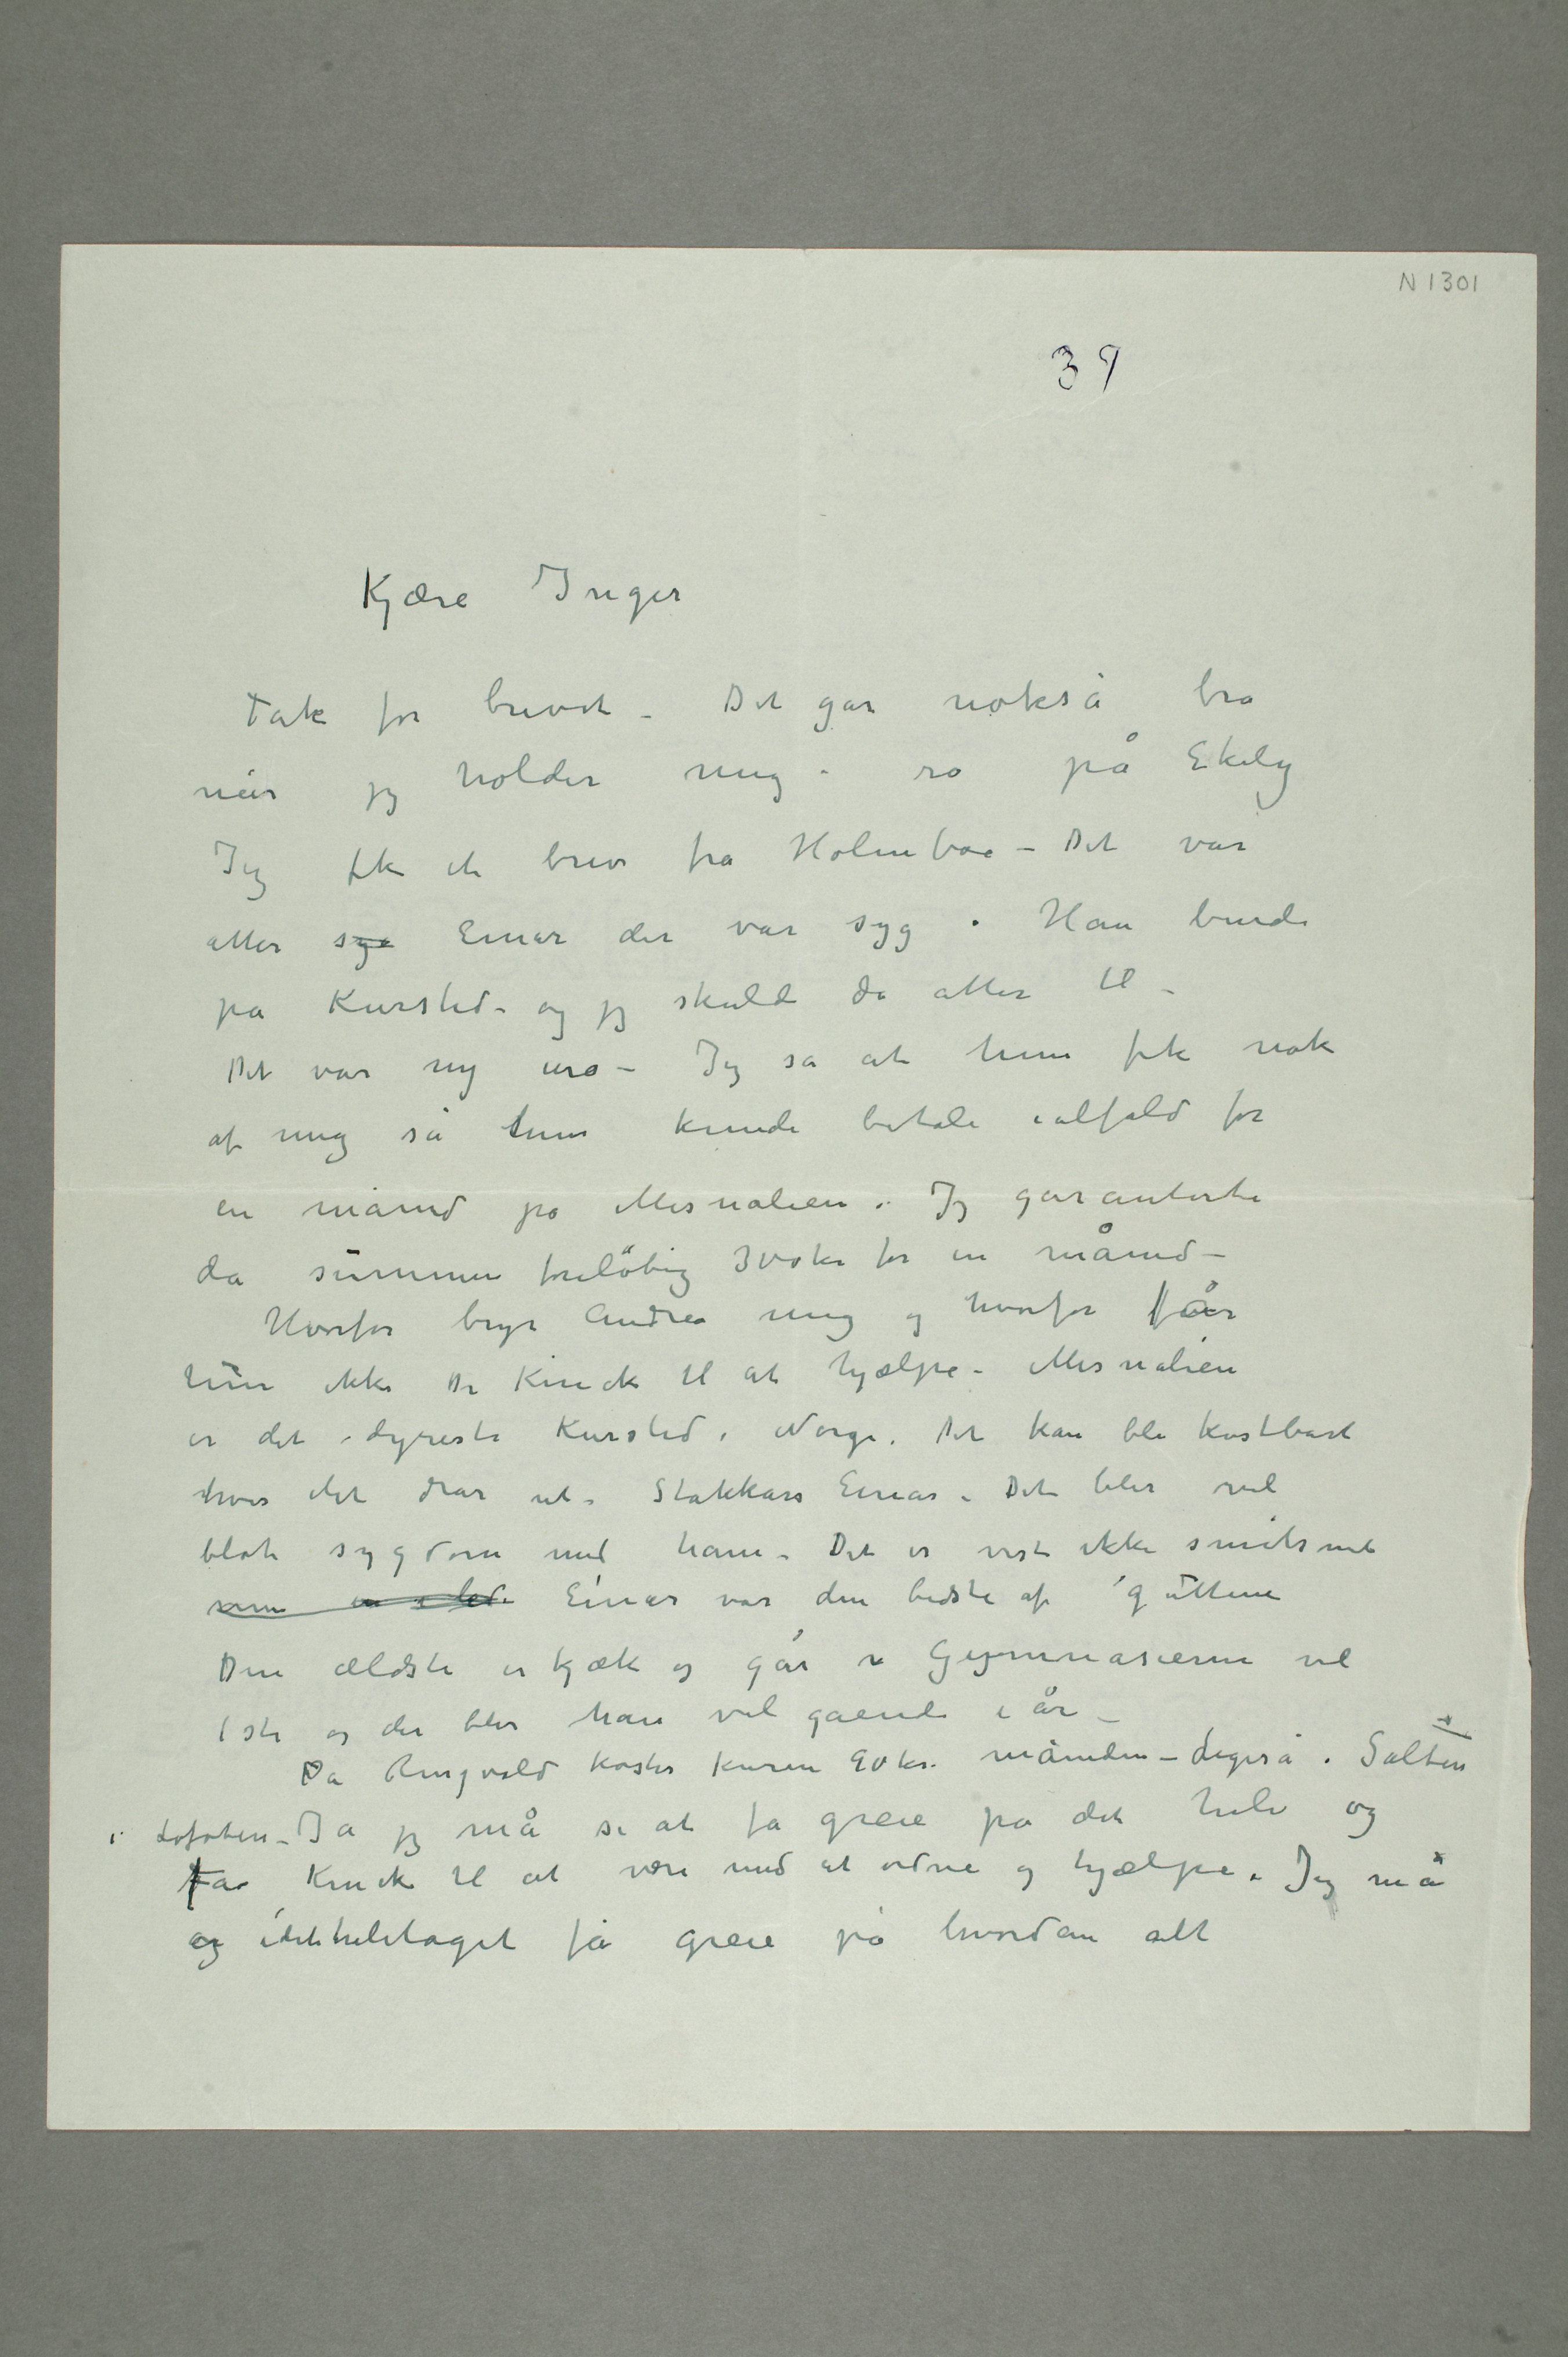 N 1301
39
Kjære Inger
Tak for brevet – Det går nokså bra
når jeg holder mig i ro på Ekely
Jeg fik et brev fra Holmboe – Det var
atter syg Einar der var syg . Han burde
på Kursted – og jeg skulde da atter til –
Det var ny uro – Jeg sa at hun fik nok
af mig så hun kunde betale ialfald for
en måned på Mesnalien . Jeg garanterte
da summen foreløbig 300 kr for en måned –
Hvorfor bryr Andrea mig og hvorfor får
hun ikke Dr Kinck til at hjælpe – Mesnalien
er det dyreste Kursted i Norge. Det kan bli kostbart
hvis det drar ut – Stakkars Einar – Det blir vel
blot sygdom med ham – Det er vist ikke smitsomt
Einar var den bedste af guttene
Den ældste er kjæk og går i Gymnasierne vel
1ste og der blir han vel gående i år –
På Ringvold koster kuren 90 kr. måneden – Ligeså i Salten
i Lofoten – Ja jeg må se at få greie på det hele og
Få Kinck til at være med at ordne og hjælpe . Jeg må
og idethéletaget få greie på hvordan alt